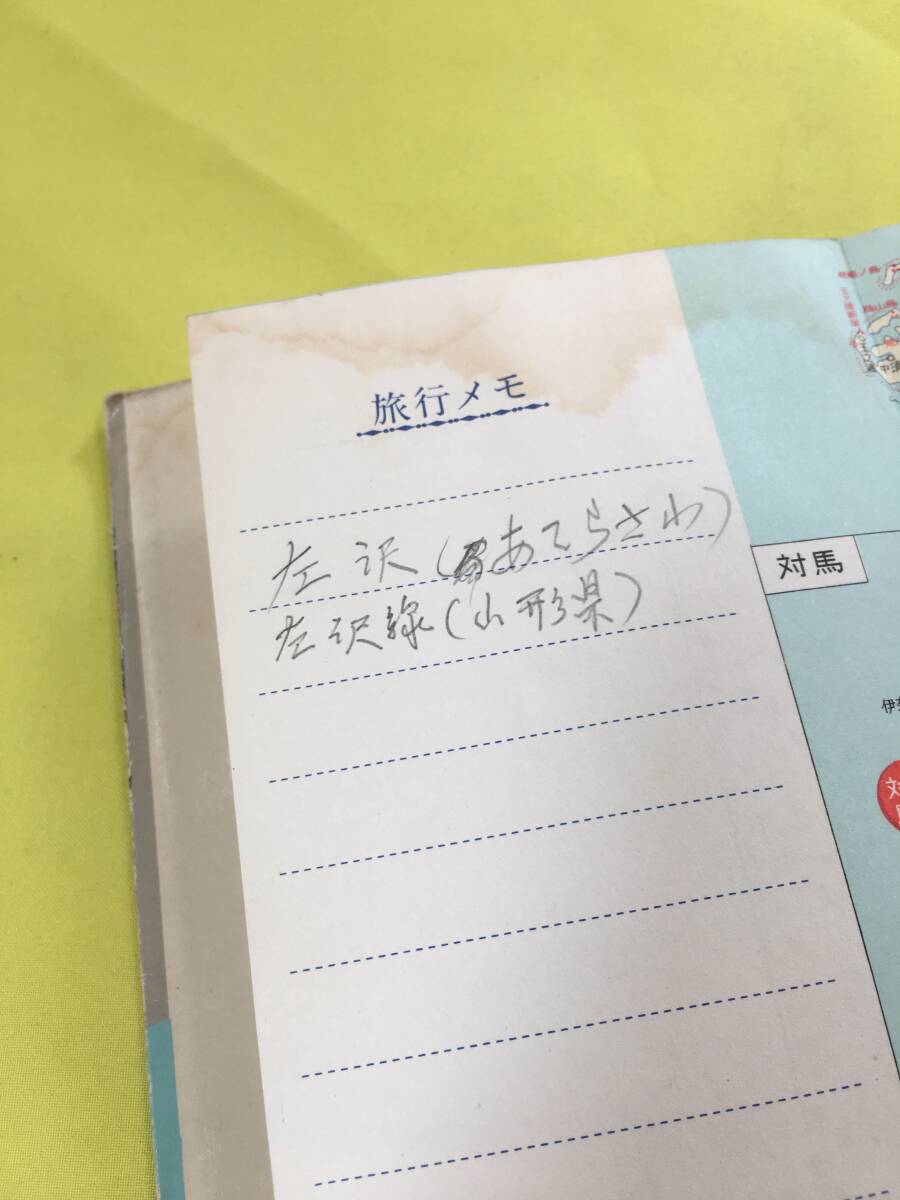 旅行メモ
左沢(あてらさわ)
左沢線(山形県)
対馬